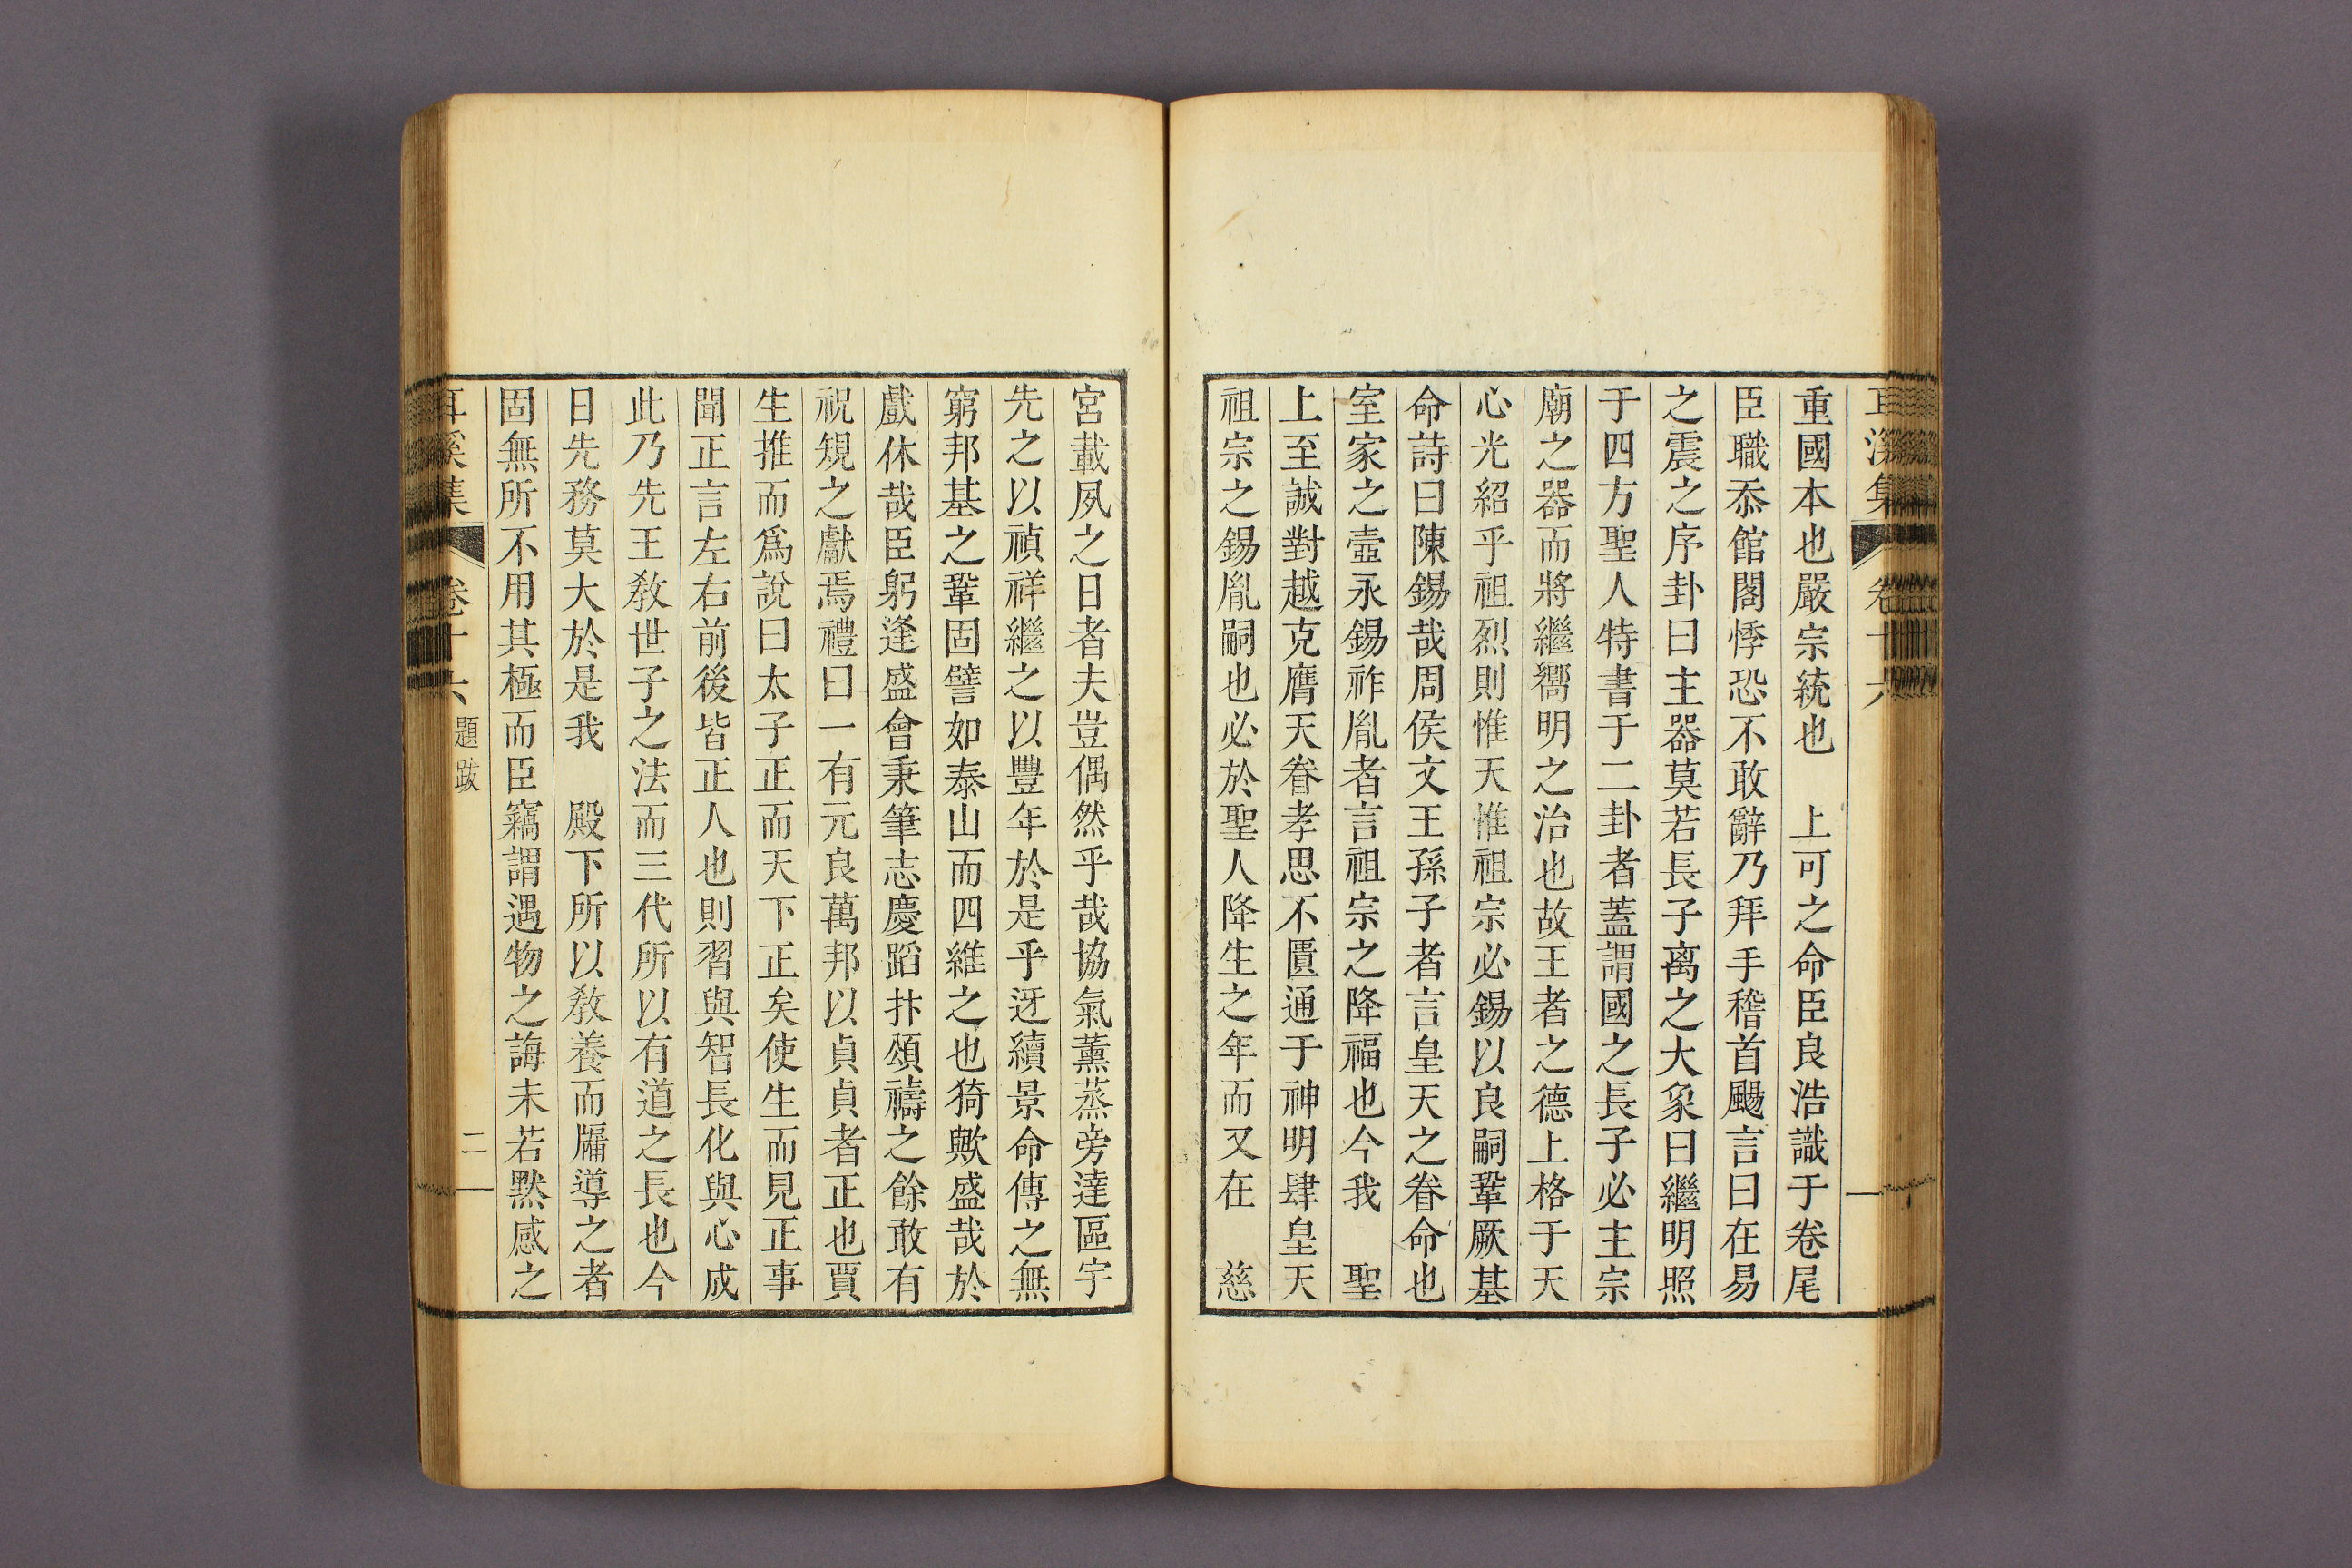 耳溪集 卷十六
重國本也嚴宗統也 上可之命臣良浩識于卷尾
臣職忝館閣悸恐不敢辭乃拜手稽首颺言曰在易
之震之序卦曰主器莫若長子离之大象曰繼明照
于四方聖人特書于二卦者蓋謂國之長子必主宗
廟之器而將繼嚮明之治也故王者之德上格于天
心光紹乎祖烈則惟天惟祖宗必錫以良嗣鞏厥基
命詩曰陳錫哉周侯文王孫子者言皇天之眷命也
室家之壼永錫祚胤者言祖宗之降福也今我 聖
上至誠對越克膺天眷孝思不匱通于神明肆皇天
祖宗之錫胤嗣也必於聖人降生之年而又在 慈
宮載夙之日者夫豈偶然乎哉協氣薰蒸旁達區宇
先之以禎祥繼之以豐年於是乎迓續景命傳之無
窮邦基之鞏固譬如泰山而四維之也猗歟盛哉於
戲休哉臣躬逢盛會秉筆志慶蹈抃頌禱之餘敢有
祝規之獻焉禮曰一有元良萬邦以貞貞者正也賈
生推而爲說曰太子正而天下正矣使生而見正事
聞正言左右前後皆正人也則習與智長化與心成
此乃先王敎世子之法而三代所以有道之長也今
日先務莫大於是我 殿下所以敎養而牖導之者
固無所不用其極而臣竊謂遇物之誨未若默感之
耳溪集 卷十六 題跋 二